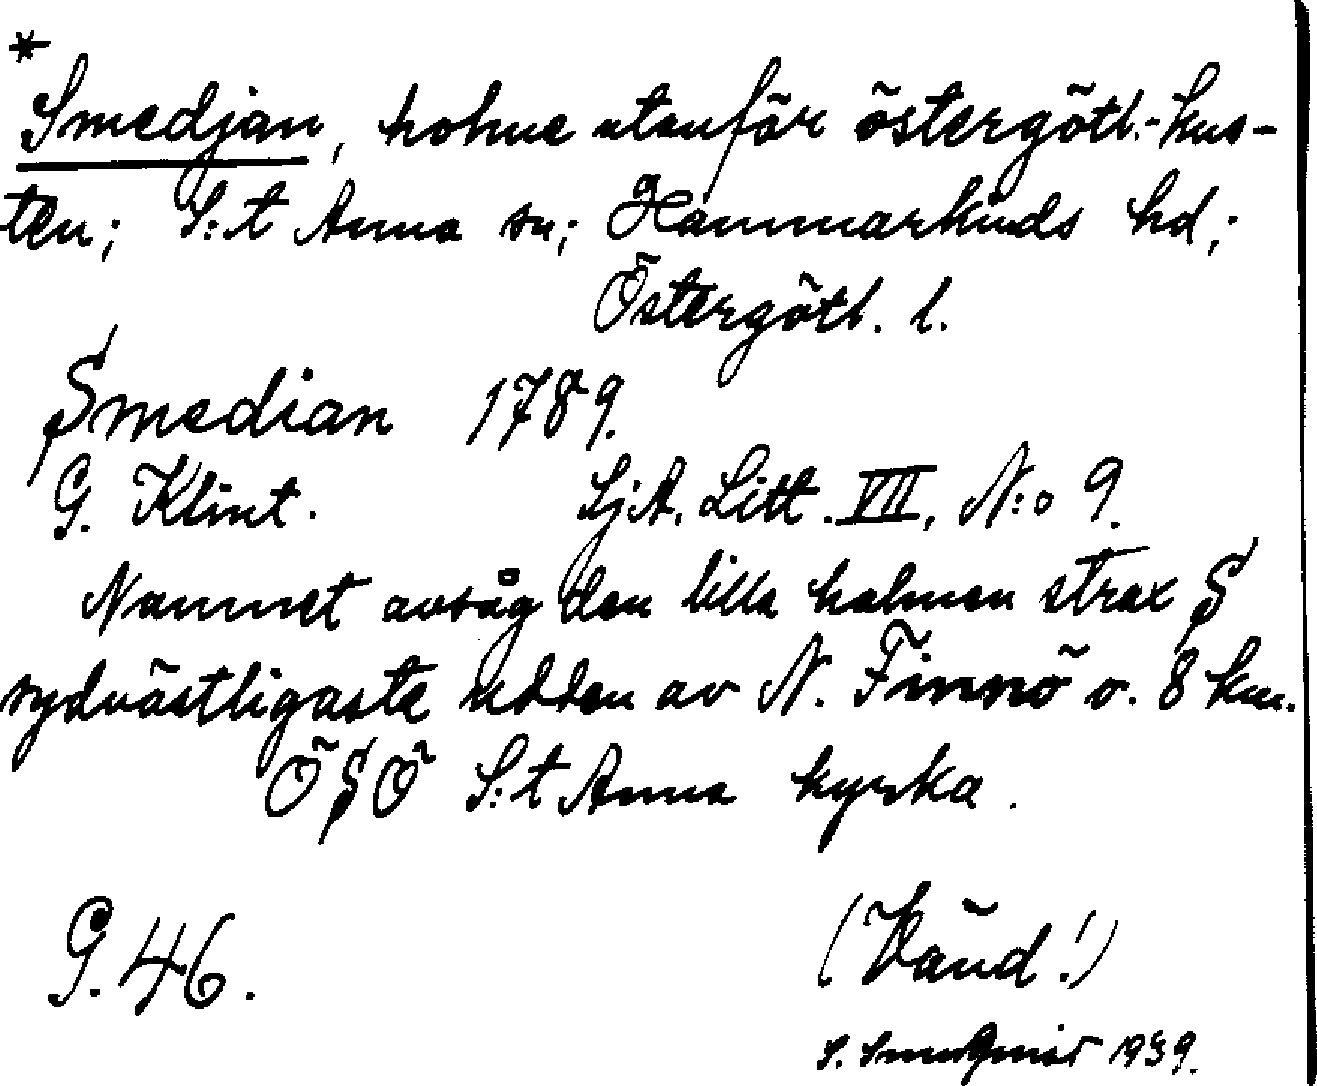 *
Smedjan, holme utanför östergötl.-kus-
ten; S:t Anna sn; Hammarkinds hd;
Östergötl. l.
Smedian 1789.
G. Klint. SjA. Litt. VII, N:o 9.
Namnet avsåg den lilla holmen strax S
sydvästligaste udden av N. Finnö o. 8 km.
ÖSÖ S:t Anna kyrka.
G. 46. (Vänd!)
S. 1939.